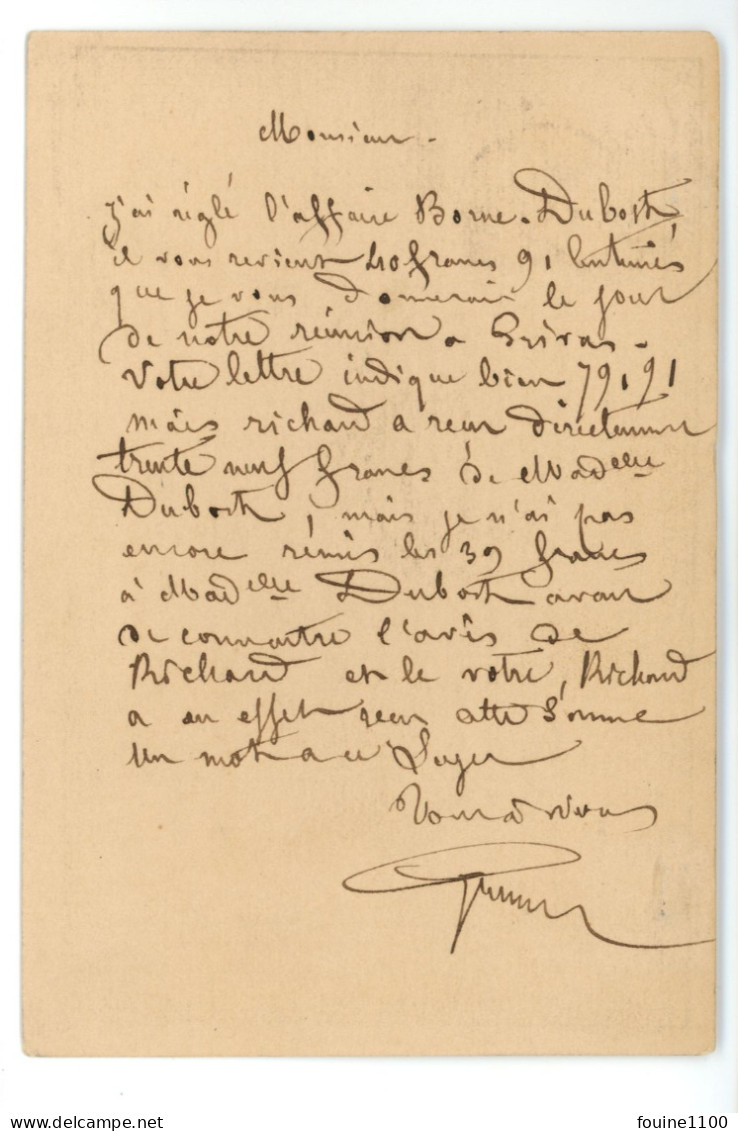 Monsieur.
j'ai réglé l'affaire Borne-Dubost,
il vous revient 40 francs 91 Centimes
que je vous donnerais le jour
de notre réunion a
Votre lettre indique bien 79,91
mais richard a reçu directement
trente neuf francs de Madelle
Dubost, mais je n'ai pas
encore rémis les 39 francs
à Madelle Dubost avant
de connaitre l'avis de
Richard et le votre, Richard
a en effet reçu cette somme
Un mot a ce Sujet
Tout à vous
fouine1100